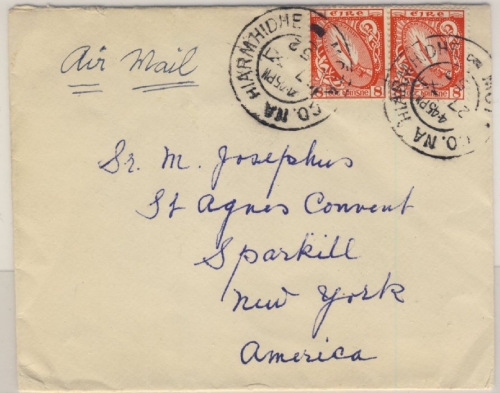 Air Mail
ÉIRE ÉIRE
8 8
CO. NA HIARMHIDHE
4.45PM
CO. NA HIARMHIDHE
4.45PM
27
Sr. M. Josephus
St Agnes Convent
Sparkill
New York
America